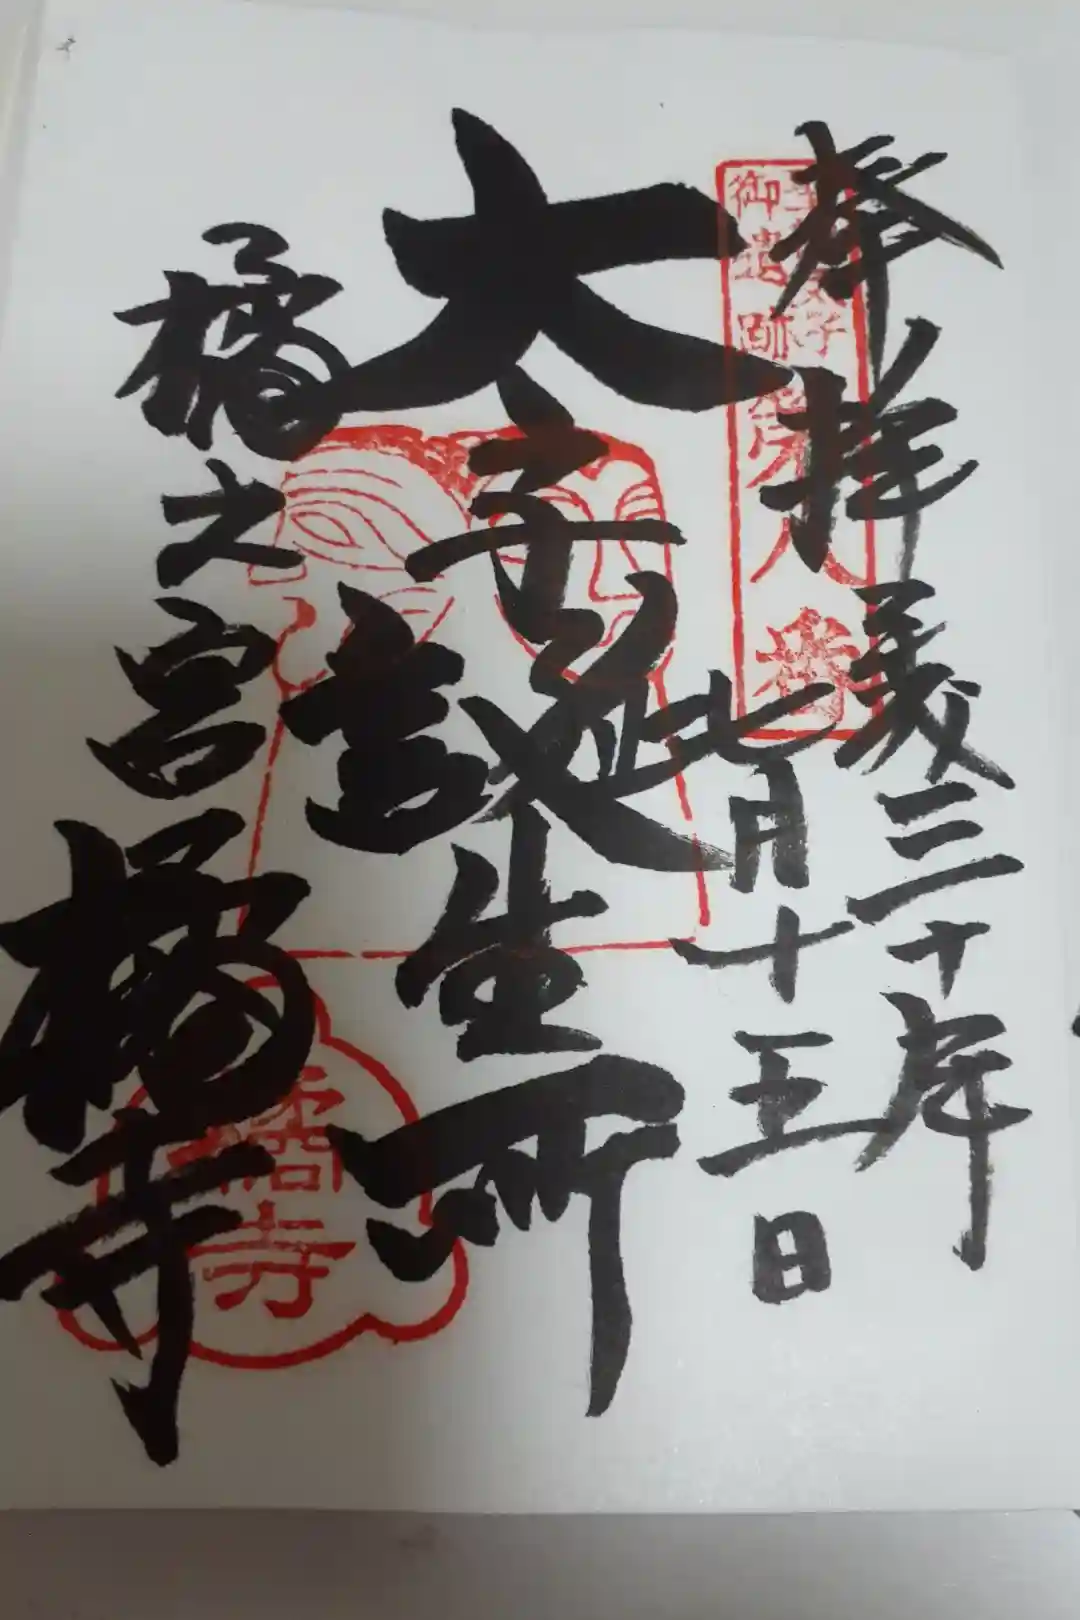 奉拝
義三十年
七月十五日
太子誕生所
橘之宮
橘寺
聖徳太子
御遺跡第八番
橘寺